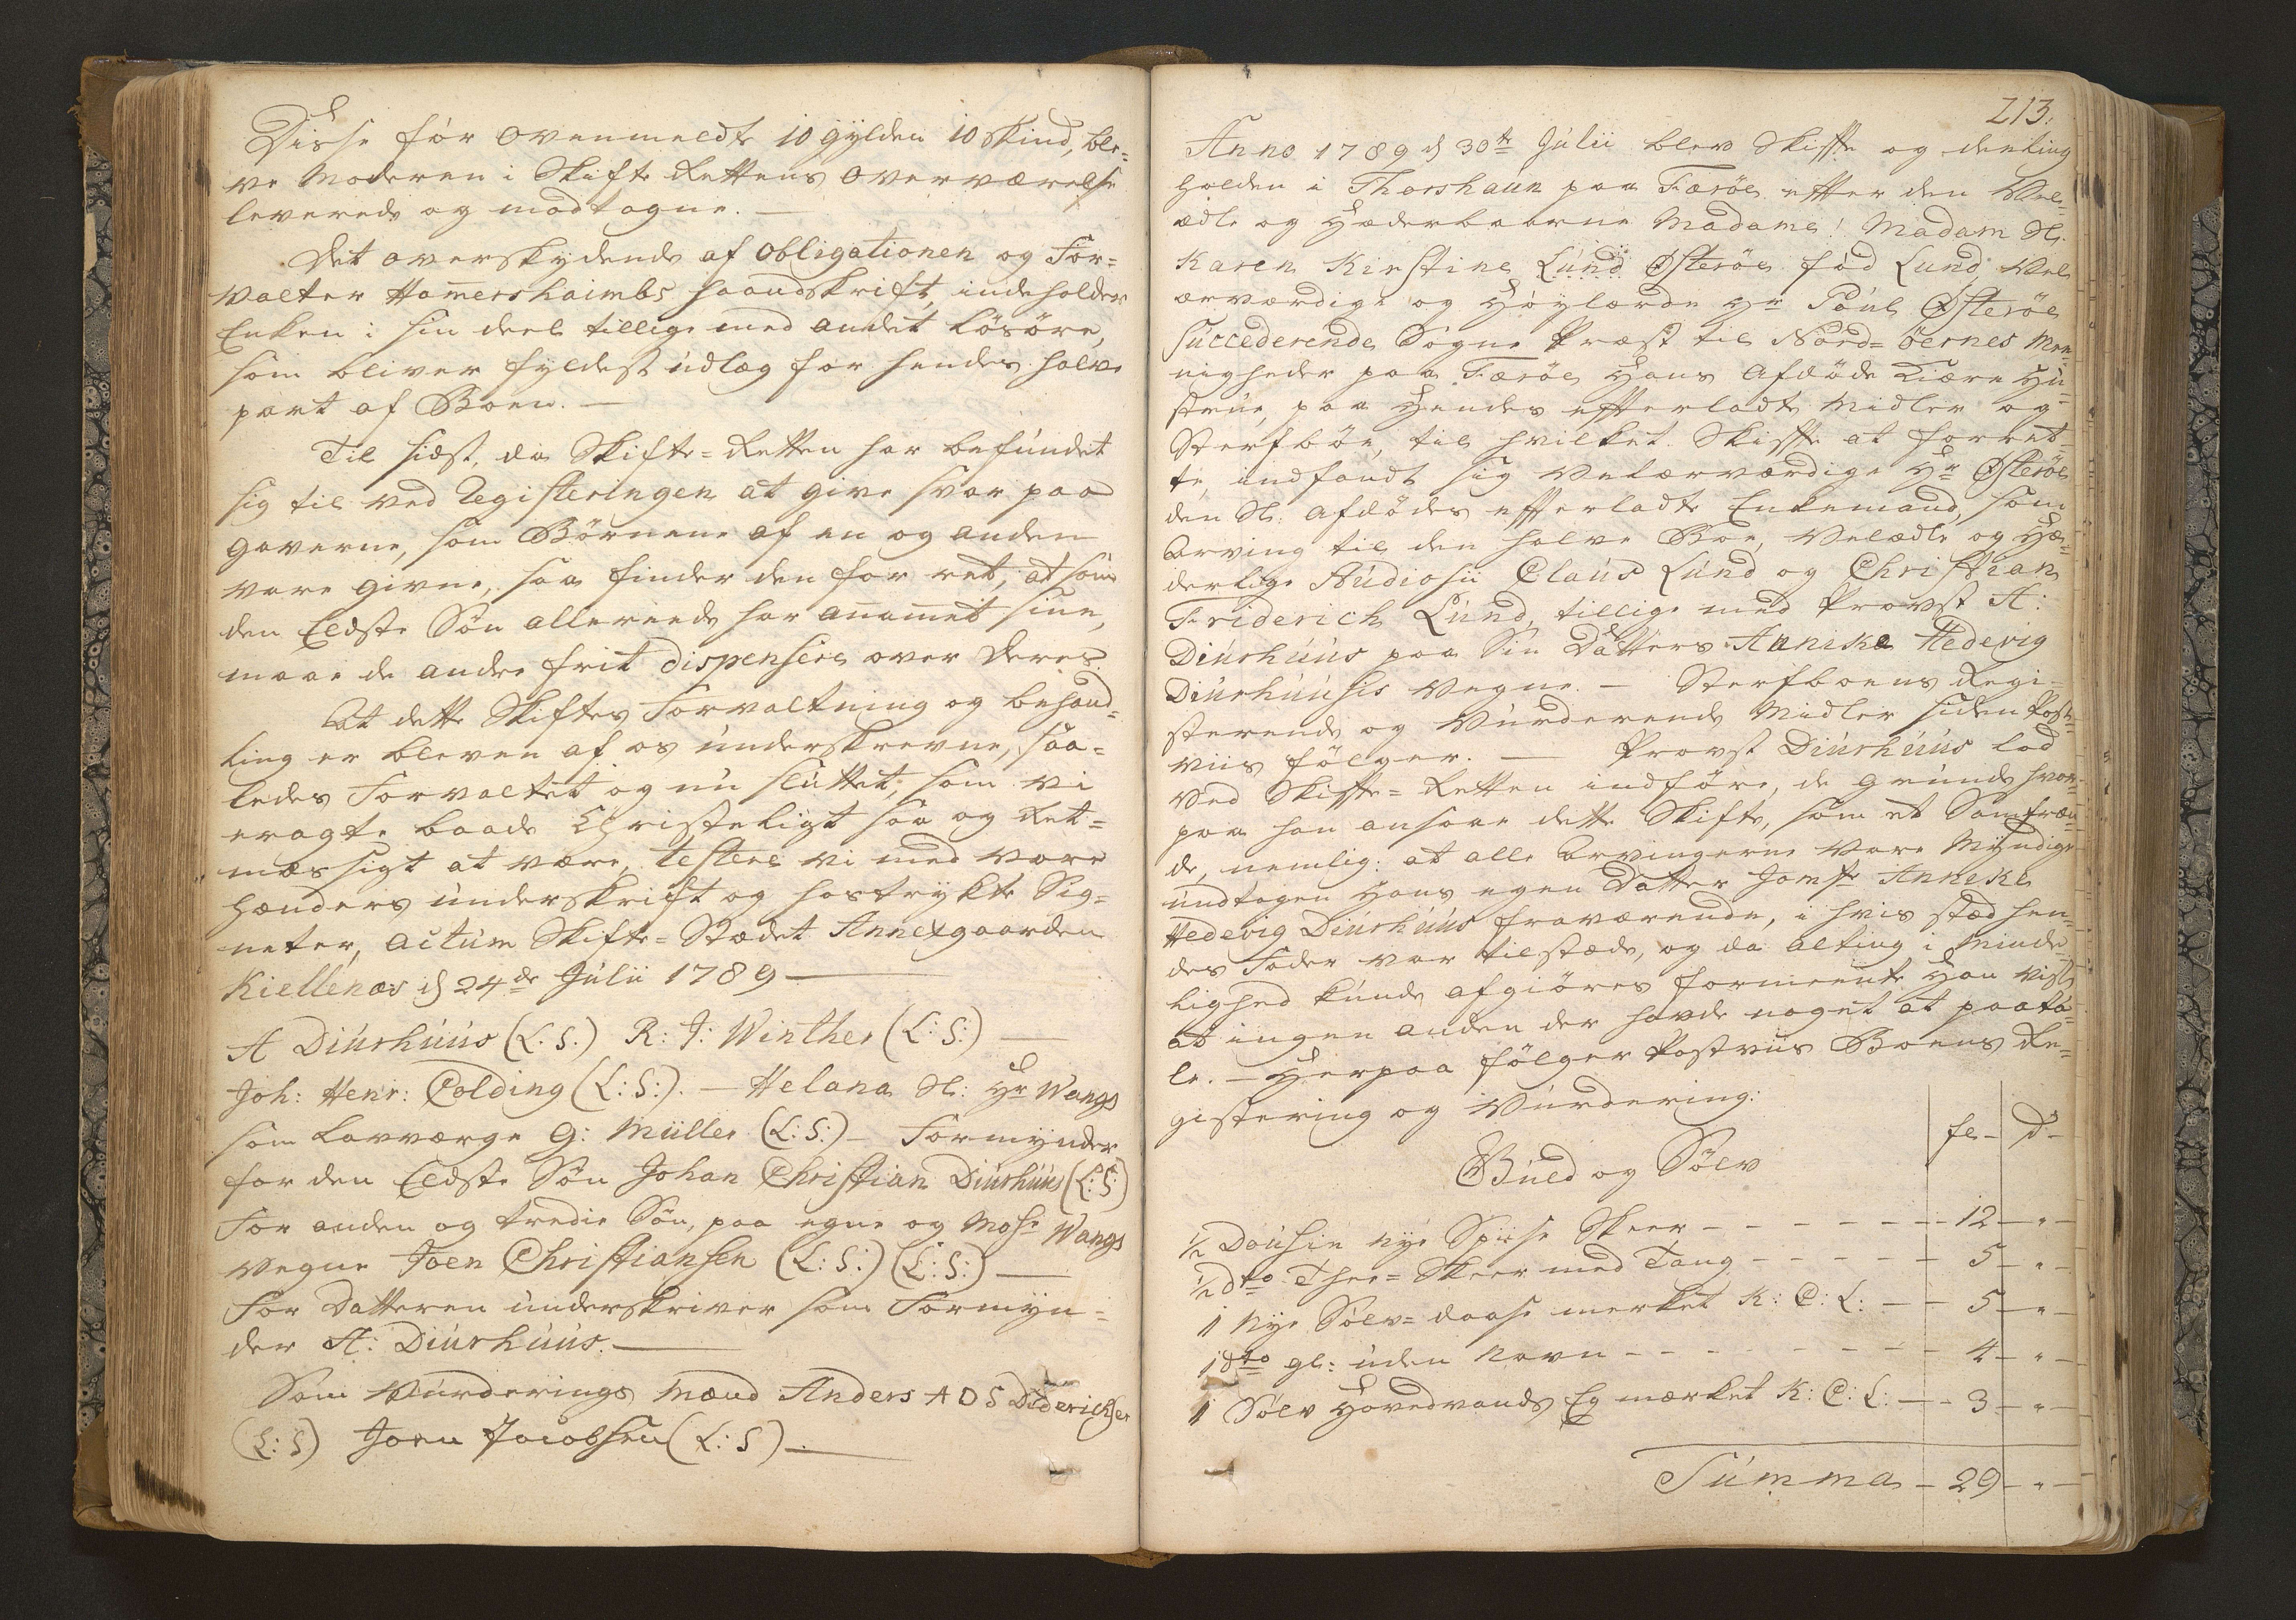 Disse før ovenmeldte 10 gylden 10 skind, ble=
ve Moderen i Skifte Rettens Overværelse
leverede og modtagne. —
Det overskydende af Obligationen og For=
valter Hamershaimbs haandskrift, indeholder
Enken i sin deel tillige med andet Løsøre,
som bliver fyldest udlæg for hendes halve
part af Boen. —
Til sidst, da Skifte=Retten har befundet
sig til ved Registeringen at give svar paa
Gaverne, som Børnene af en og anden
vare givne, saa finder den for ret, at som
den Eldste Søn allereede har anamet sine,
maae de andre frit dispensere over Deres.
At dette Skiftes Forvaltning og behand=
ling er bleven af os underskrevne, saa=
ledes Forvaltet og nu sluttet, som vi
eragte baade Christeligt saa og Ret=
mæssigt at være, testere vi med vore
hænders underskrift og hostrykte Sig=
neter, actum Skifte=Stædet Annexgaarden
Kiellenæs d 24de Julii 1789 —
A Diurhuus (L.S.) R: J: Winther (L:S:) —
Joh: Henr: Colding (L:S:). — Helana Sl: Hr Wangs
som Lavværge G: Müller (L:S:) — Formynder
for den Eldste Søn Johan Christian Diurhuus (L:S:)
For anden og tredie Søn, paa egne og Mosr Wangs
vegne Joen Christiansen (L:S:) (L:S:) —
For Datteren underskriver som Formyn=
der A: Diurhuus. —
Som Vurderings Mænd Anders A D S Diderichsen
(L:S) Joen Jacobsen (L:S) —
213.
Anno 1789 d 30te Julii blev Skifte og deeling
holden i Thorshaun paa Færöe efter den Vel=
ædle og Hæderbaarne Madame! Madam Sl.
Karen Kirstine Lund Østeröe fød Lund, Vel
ærværdige og Høylærde Hr Poul Østeröe
succederende Sogne Præst til Nord=öernes Me=
nigheder paa Færöe Hans Afdøde kiære Hu=
strue, paa Hendes efterladte Midler og
Sterfböe, til hvilket Skifte at forret=
te, indfandt sig Velærværdige Hr Østeröe
den Sl: Afdødes efterladte Enkemand, som
Arving til den halve Boe, Velædle og Hæ=
derlige Studiosii Claus Lund og Christian
Friderich Lund, tillige med Provst A:
Diurhuus paa Sin Datters Annike Hedevig
Diurhuusis vegne. — Sterfboens Regi=
sterende og Vurderende Midler siden Post=
viis følger. — Provst Diurhuus lod
ved Skifte=Retten indføre, de Grunde hvor=
paa han ansaae dette Skifte, som et Samfræn=
de, nemlig: at alle Arvingerne vare Myndige
undtagen Hans egen Datter Jomfr Anneke
Hedevig Diurhuus fraværende, i hvis stæd hen=
des Fader var tilstæde, og da alting i Minde=
lighed kunde afgiöres formeente Han vist
at ingen anden der havde noget at paata=
le. — Herpaa følger Postviis Boens Re=
gistering og Vurdering:
fl — d —
Guld og Sølv
1/2 Dousin nye Spise Skeer — — — 12 — " —
1/2 dto Thee=Skeer med Tang — — — 5 — " —
1 nye Sølv=daase merket K: C: L: — — 5 — " —
1 dto gl: uden Navn — — — 4 — " —
1 Sølv Hovedvands Eg mærket K: C: L: — — 3 — " —
Summa — 29 — " —